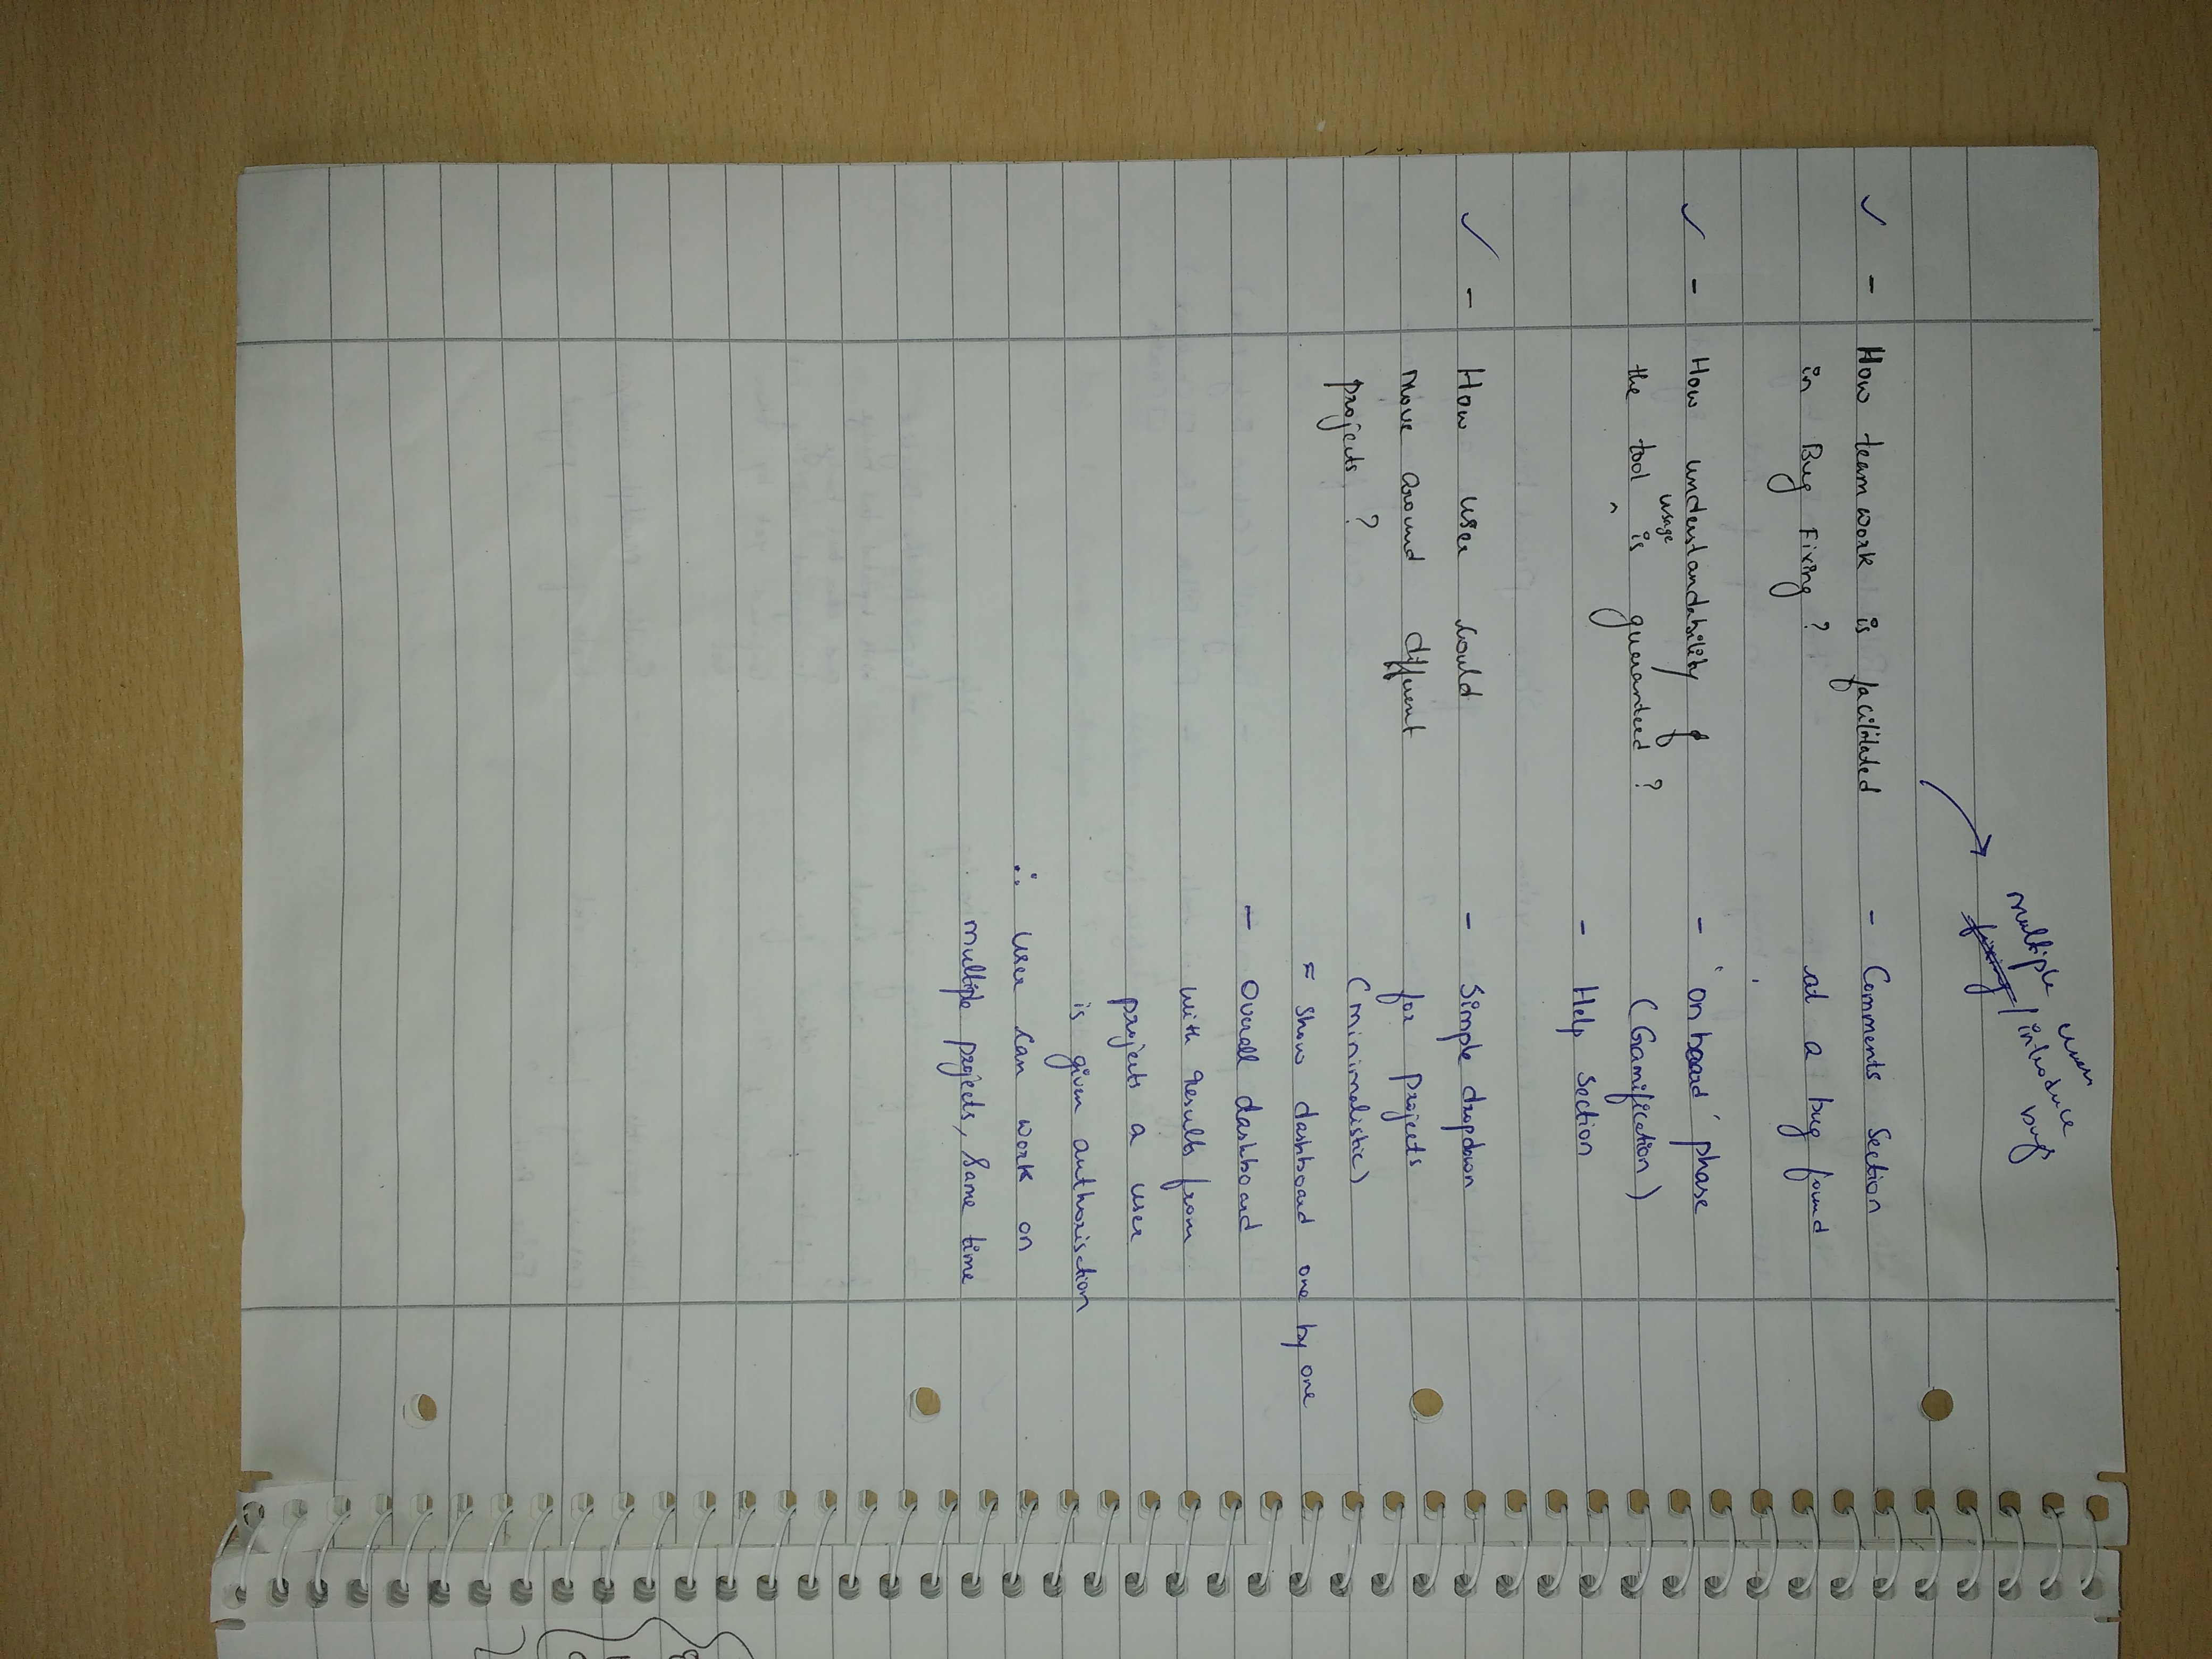 multiple users
fixing / introduce
bugs
✓ - How teamwork is facilitated
in Bug Fixing ?
- Comments Section
at a bug found
✓ - How understandability of
usage
the tool ^ is guaranteed ?
- 'onboard' phase
(Gamification)
- Help Section
✓ - How user could
move around different
projects ?
- Simple dropdown
for projects
(minimalistic)
= Show dashboard one by one
- Overall dashboard
with results from
projects a user
is given authorisction
∴ user can work on
multiple projects, same time